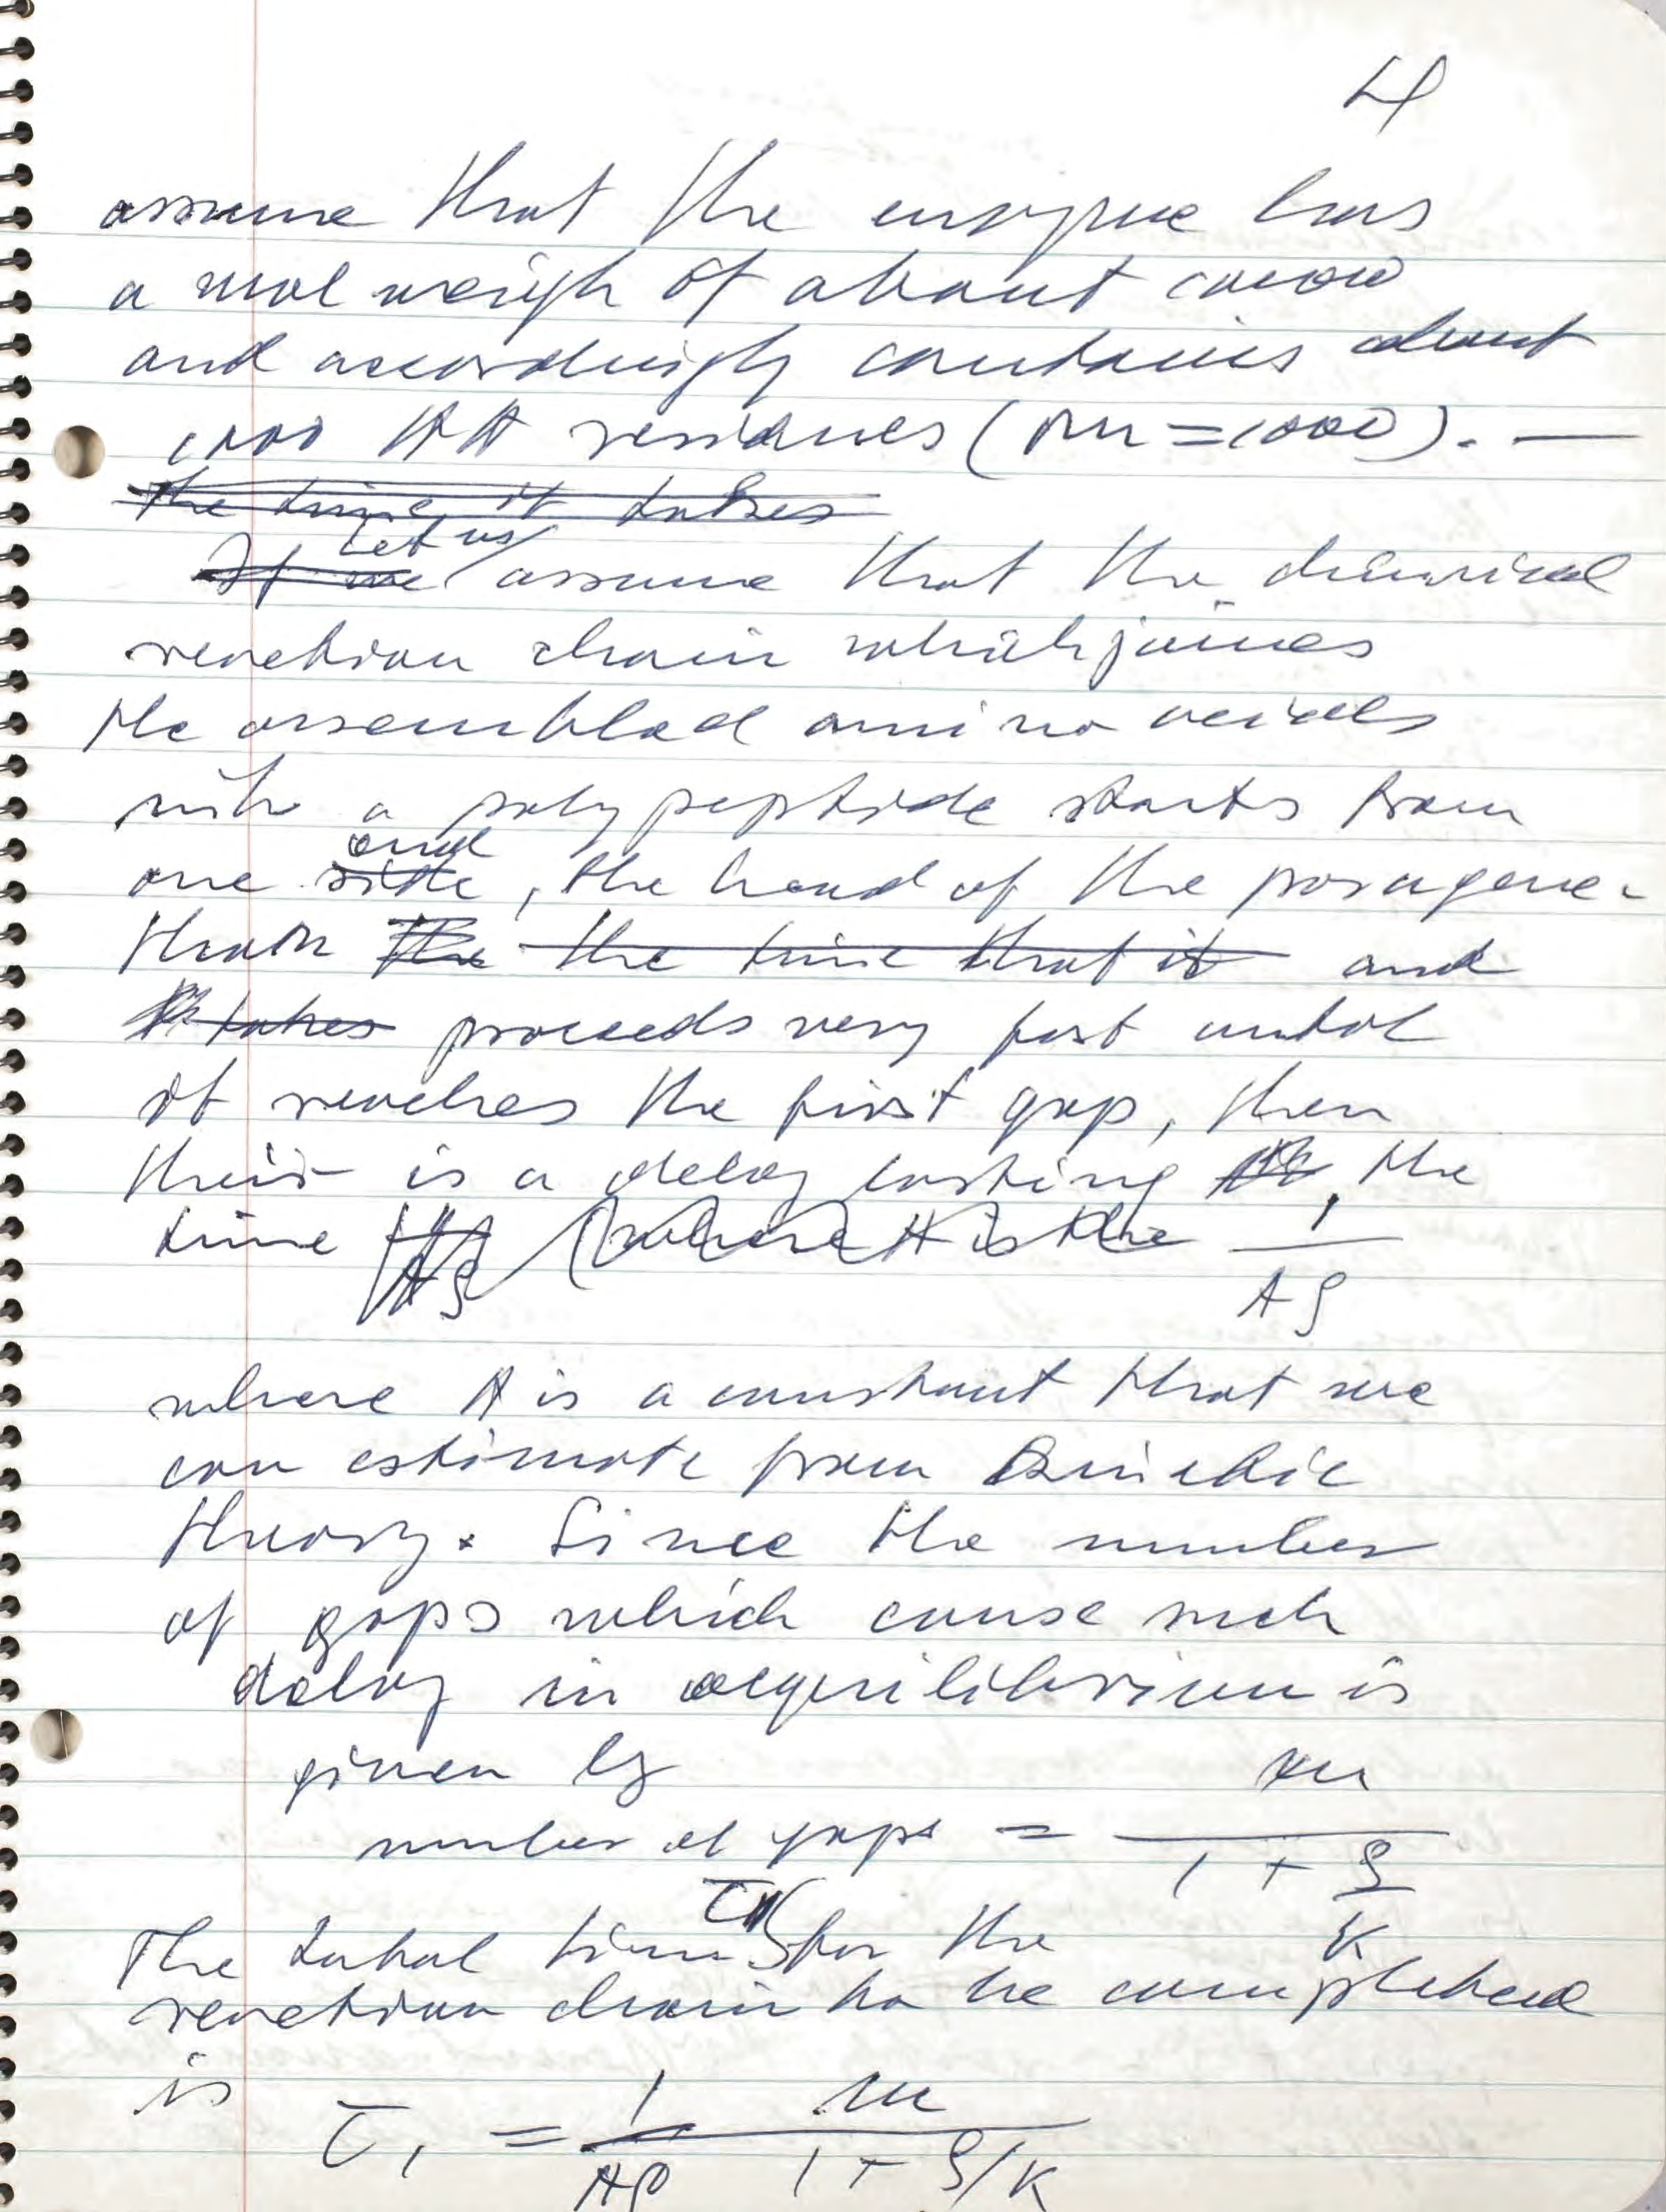 4
assume that the enzyme has
a mol weigh of about
and accordingly contains about
1000 AA residues (m = 1000). —
The time it takes
If we Let us assume that the chemical
reaction chain which joines
the assembled amino acids
into a polypeptide starts from
one side end, the head of the paragene-
the the time that it and
takes proceeds very fast until
it reaches the first gap, then
their is a delay lasting the
time (where A is the 1
Aρ
where A is a constant that we
can estimate from Kinetic
theory. Since the number
of gaps which cause such
delay in aequilibrium is
given by
number of gaps = m / 1 + ρ/K
The total time τ1 for the
reaction chain to be completed
is τ1 = 1/Aρ m / 1 + ρ/K